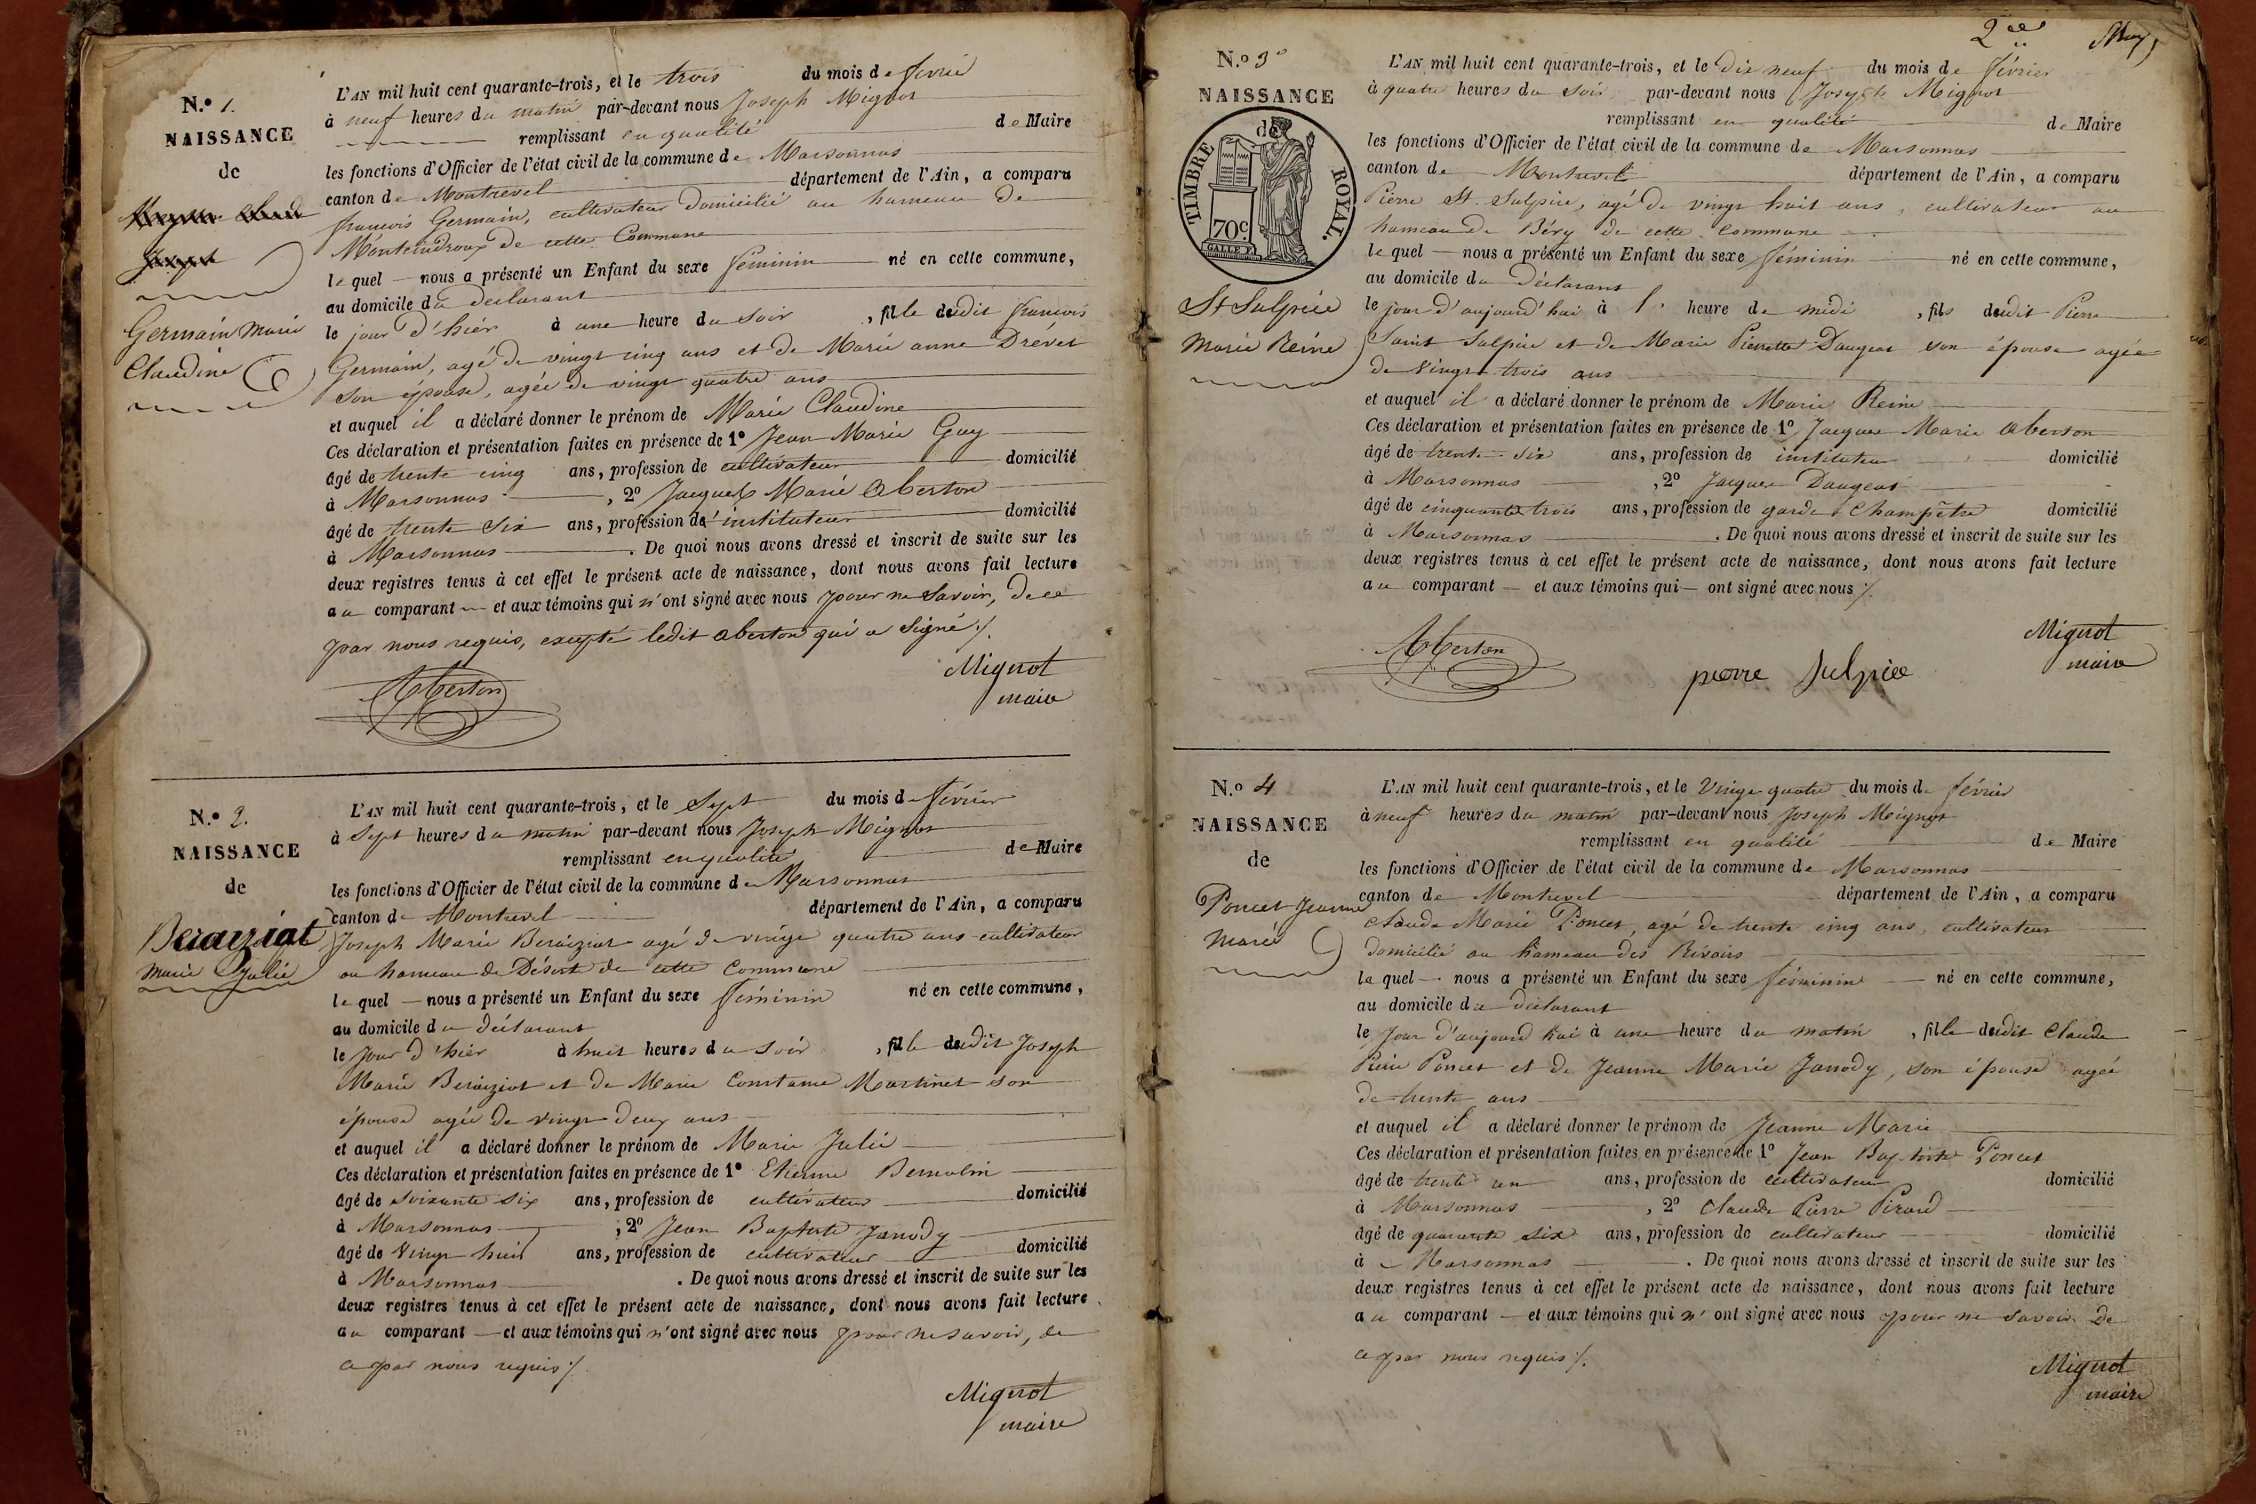 N.º 1.
NAISSANCE
de
Germain Marie
Claudine
L'AN mil huit cent quarante-trois, et le trois du mois de février
à neuf heures du matin par-devant nous Joseph Mignot
remplissant en qualité de Maire
les fonctions d'Officier de l'état civil de la commune de Marsonnas
canton de Montrevel département de l'Ain, a comparu
françois Germain, cultivateur domicilié au hameau de
de cette Commune
lequel nous a présenté un Enfant du sexe féminin né en cette commune,
au domicile du déclarant
le jour d'hier à une heure du soir, fille dudit françois
Germain, agé de vingt cinq ans et de Marie anne Drevet
son épouse, agée de vingt quatre ans
et auquel il a déclaré donner le prénom de Marie Claudine
Ces déclaration et présentation faites en présence de 1º Jean Marie Guy
âgé de trente cinq ans, profession de cultivateur domicilié
à Marsonnas, 2º Jacques Marie Aberton
âgé de trente six ans, profession d'instituteur domicilié
à Marsonnas. De quoi nous avons dressé et inscrit de suite sur les
deux registres tenus à cet effet le présent acte de naissance, dont nous avons fait lecture
au comparant et aux témoins qui n'ont signé avec nous pour ne savoir, de ce
par nous requis, excepté ledit aberton qui a signé ./.
Aberton
Mignot
maire
N.º 2.
NAISSANCE
de
Beraiziat
Marie Julie
L'AN mil huit cent quarante-trois, et le Sept du mois de février
à Sept heures du matin par-devant nous Joseph Mignot
remplissant en qualité de Maire
les fonctions d'Officier de l'état civil de la commune de Marsonnas
canton de Montrevel département de l'Ain, a comparu
Joseph Marie Beraiziat agé de vingt quatre ans cultivateur
au hameau de Désert de cette Commune
lequel nous a présenté un Enfant du sexe féminin né en cette commune,
au domicile du déclarant
le jour d'hier à huit heures du soir, fille dudit Joseph
Marie Beraiziat et de Marie Constance Martinet son
épouse agée de vingt deux ans
et auquel il a déclaré donner le prénom de Marie Julie
Ces déclaration et présentation faites en présence de 1º Etienne
âgé de soixante six ans, profession de cultivateur domicilié
à Marsonnas, 2º Jean Baptiste Janody
âgé de vingt huit ans, profession de cultivateur domicilié
à Marsonnas. De quoi nous avons dressé et inscrit de suite sur les
deux registres tenus à cet effet le présent acte de naissance, dont nous avons fait lecture
au comparant et aux témoins qui n'ont signé avec nous pour ne savoir, de
ce par nous requis ./.
Mignot
maire
2ee
N.º 3
NAISSANCE
de
TIMBRE ROYAL.
70c
GALLE F.
St Sulpice
Marie Reine
L'AN mil huit cent quarante-trois, et le dix neuf du mois de février
à quatre heures du soir par-devant nous Joseph Mignot
remplissant en qualité de Maire
les fonctions d'Officier de l'état civil de la commune de Marsonnas
canton de Montrevel département de l'Ain, a comparu
Pierre St. Sulpice, agé de vingt huit ans, cultivateur au
hameau de Béry de cette commune
lequel nous a présenté un Enfant du sexe féminin né en cette commune,
au domicile du déclarant
le jour d'aujourd'hui à l' heure de midi, fils dudit Pierre
Saint Sulpice et de Marie Pierrette Daugeat son épouse agée
de vingt trois ans
et auquel il a déclaré donner le prénom de Marie Reine
Ces déclaration et présentation faites en présence de 1º Jacques Marie aberton
âgé de trente six ans, profession de instituteur domicilié
à Marsonnas, 2º Jacques Daugeat
âgé de cinquante trois ans, profession de garde champêtre domicilié
à Marsonnas. De quoi nous avons dressé et inscrit de suite sur les
deux registres tenus à cet effet le présent acte de naissance, dont nous avons fait lecture
au comparant et aux témoins qui ont signé avec nous ./.
Aberton
pierre Sulpice
Mignot
maire
N.º 4
NAISSANCE
de
Poncet Jeanne
Marie
L'AN mil huit cent quarante-trois, et le vingt quatre du mois de février
à neuf heures du matin par-devant nous Joseph Mignot
remplissant en qualité de Maire
les fonctions d'Officier de l'état civil de la commune de Marsonnas
canton de Montrevel département de l'Ain, a comparu
Claude Marie Poncet, agé de trente cinq ans, cultivateur
domicilié au hameau des Rivoirs
lequel nous a présenté un Enfant du sexe féminin né en cette commune,
au domicile du déclarant
le jour d'aujourd'hui à une heure du matin, fille dudit Claude
Pierre Poncet et de Jeanne Marie Janody, son épouse agée
de trente ans
et auquel il a déclaré donner le prénom de Jeanne Marie
Ces déclaration et présentation faites en présence de 1º Jean Baptiste Poncet
âgé de trente un ans, profession de cultivateur domicilié
à Marsonnas, 2º Claude Pierre Pirard
âgé de quarante six ans, profession de cultivateur domicilié
à Marsonnas. De quoi nous avons dressé et inscrit de suite sur les
deux registres tenus à cet effet le présent acte de naissance, dont nous avons fait lecture
au comparant et aux témoins qui n'ont signé avec nous pour ne savoir de
ce par nous requis ./.
Mignot
maire